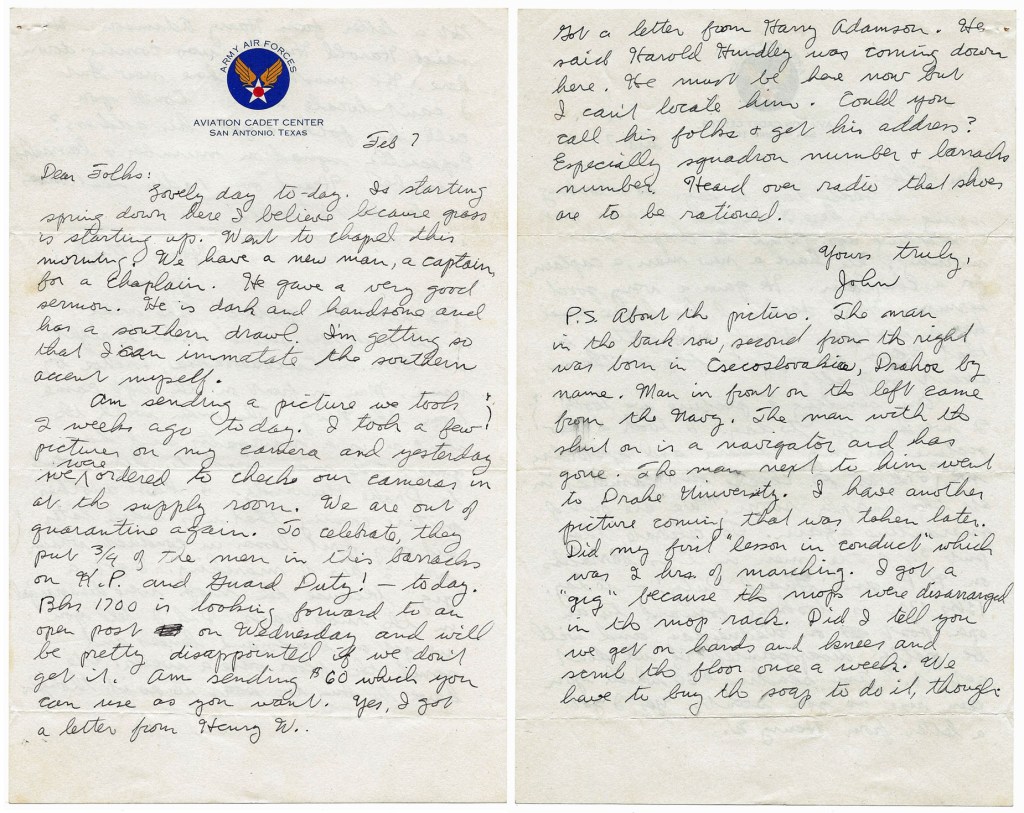 ARMY AIR FORCES
AVIATION CADET CENTER
SAN ANTONIO, TEXAS
Feb 7
Dear Folks:
Lovely day to-day. Is starting
spring down here I believe because grass
is starting up. Went to chapel this
morning. We have a new man, a captain,
for a Chaplain. He gave a very good
sermon. He is dark and handsome and
has a southern drawl. I'm getting so
that I can immatate the southern
accent myself.
Am sending a picture we took
2 weeks ago to day. I took a few
pictures on my camera and yesterday
we were ordered to check our cameras in
at the supply room. We are out of
quarantine again. To celebrate, they
put 3/4 of the men in this barracks
on K.P. and Guard Duty! – today.
Bks 1700 is looking forward to an
open post on Wednesday and will
be pretty disappointed if we don't
get it. Am sending $60 which you
can use as you want. Yes, I got
a letter from Henry W..
Got a letter from Harry Adamson. He
said Harold Hundley was coming down
here. He must be here now but
I can't locate him. Could you
call his folks + get his address?
Especially squadron number + barracks
number. Heard over radio that shoes
are to be rationed.
Yours truly,
John
P.S. About the picture. The man
in the back row, second from the right
was born in Csecoslovakia, Drahos by
name. Man in front on the left came
from the Navy. The man with the
shirt on is a navigator and has
gone. The man next to him went
to Drake University. I have another
picture coming that was taken later.
Did my first "lesson in conduct" which
was 2 hrs. of marching. I got a
"gig" because the mops were disarranged
in the mop rack. Did I tell you
we get on hands and knees and
scrub the floor once a week. We
have to buy the soap to do it, though.